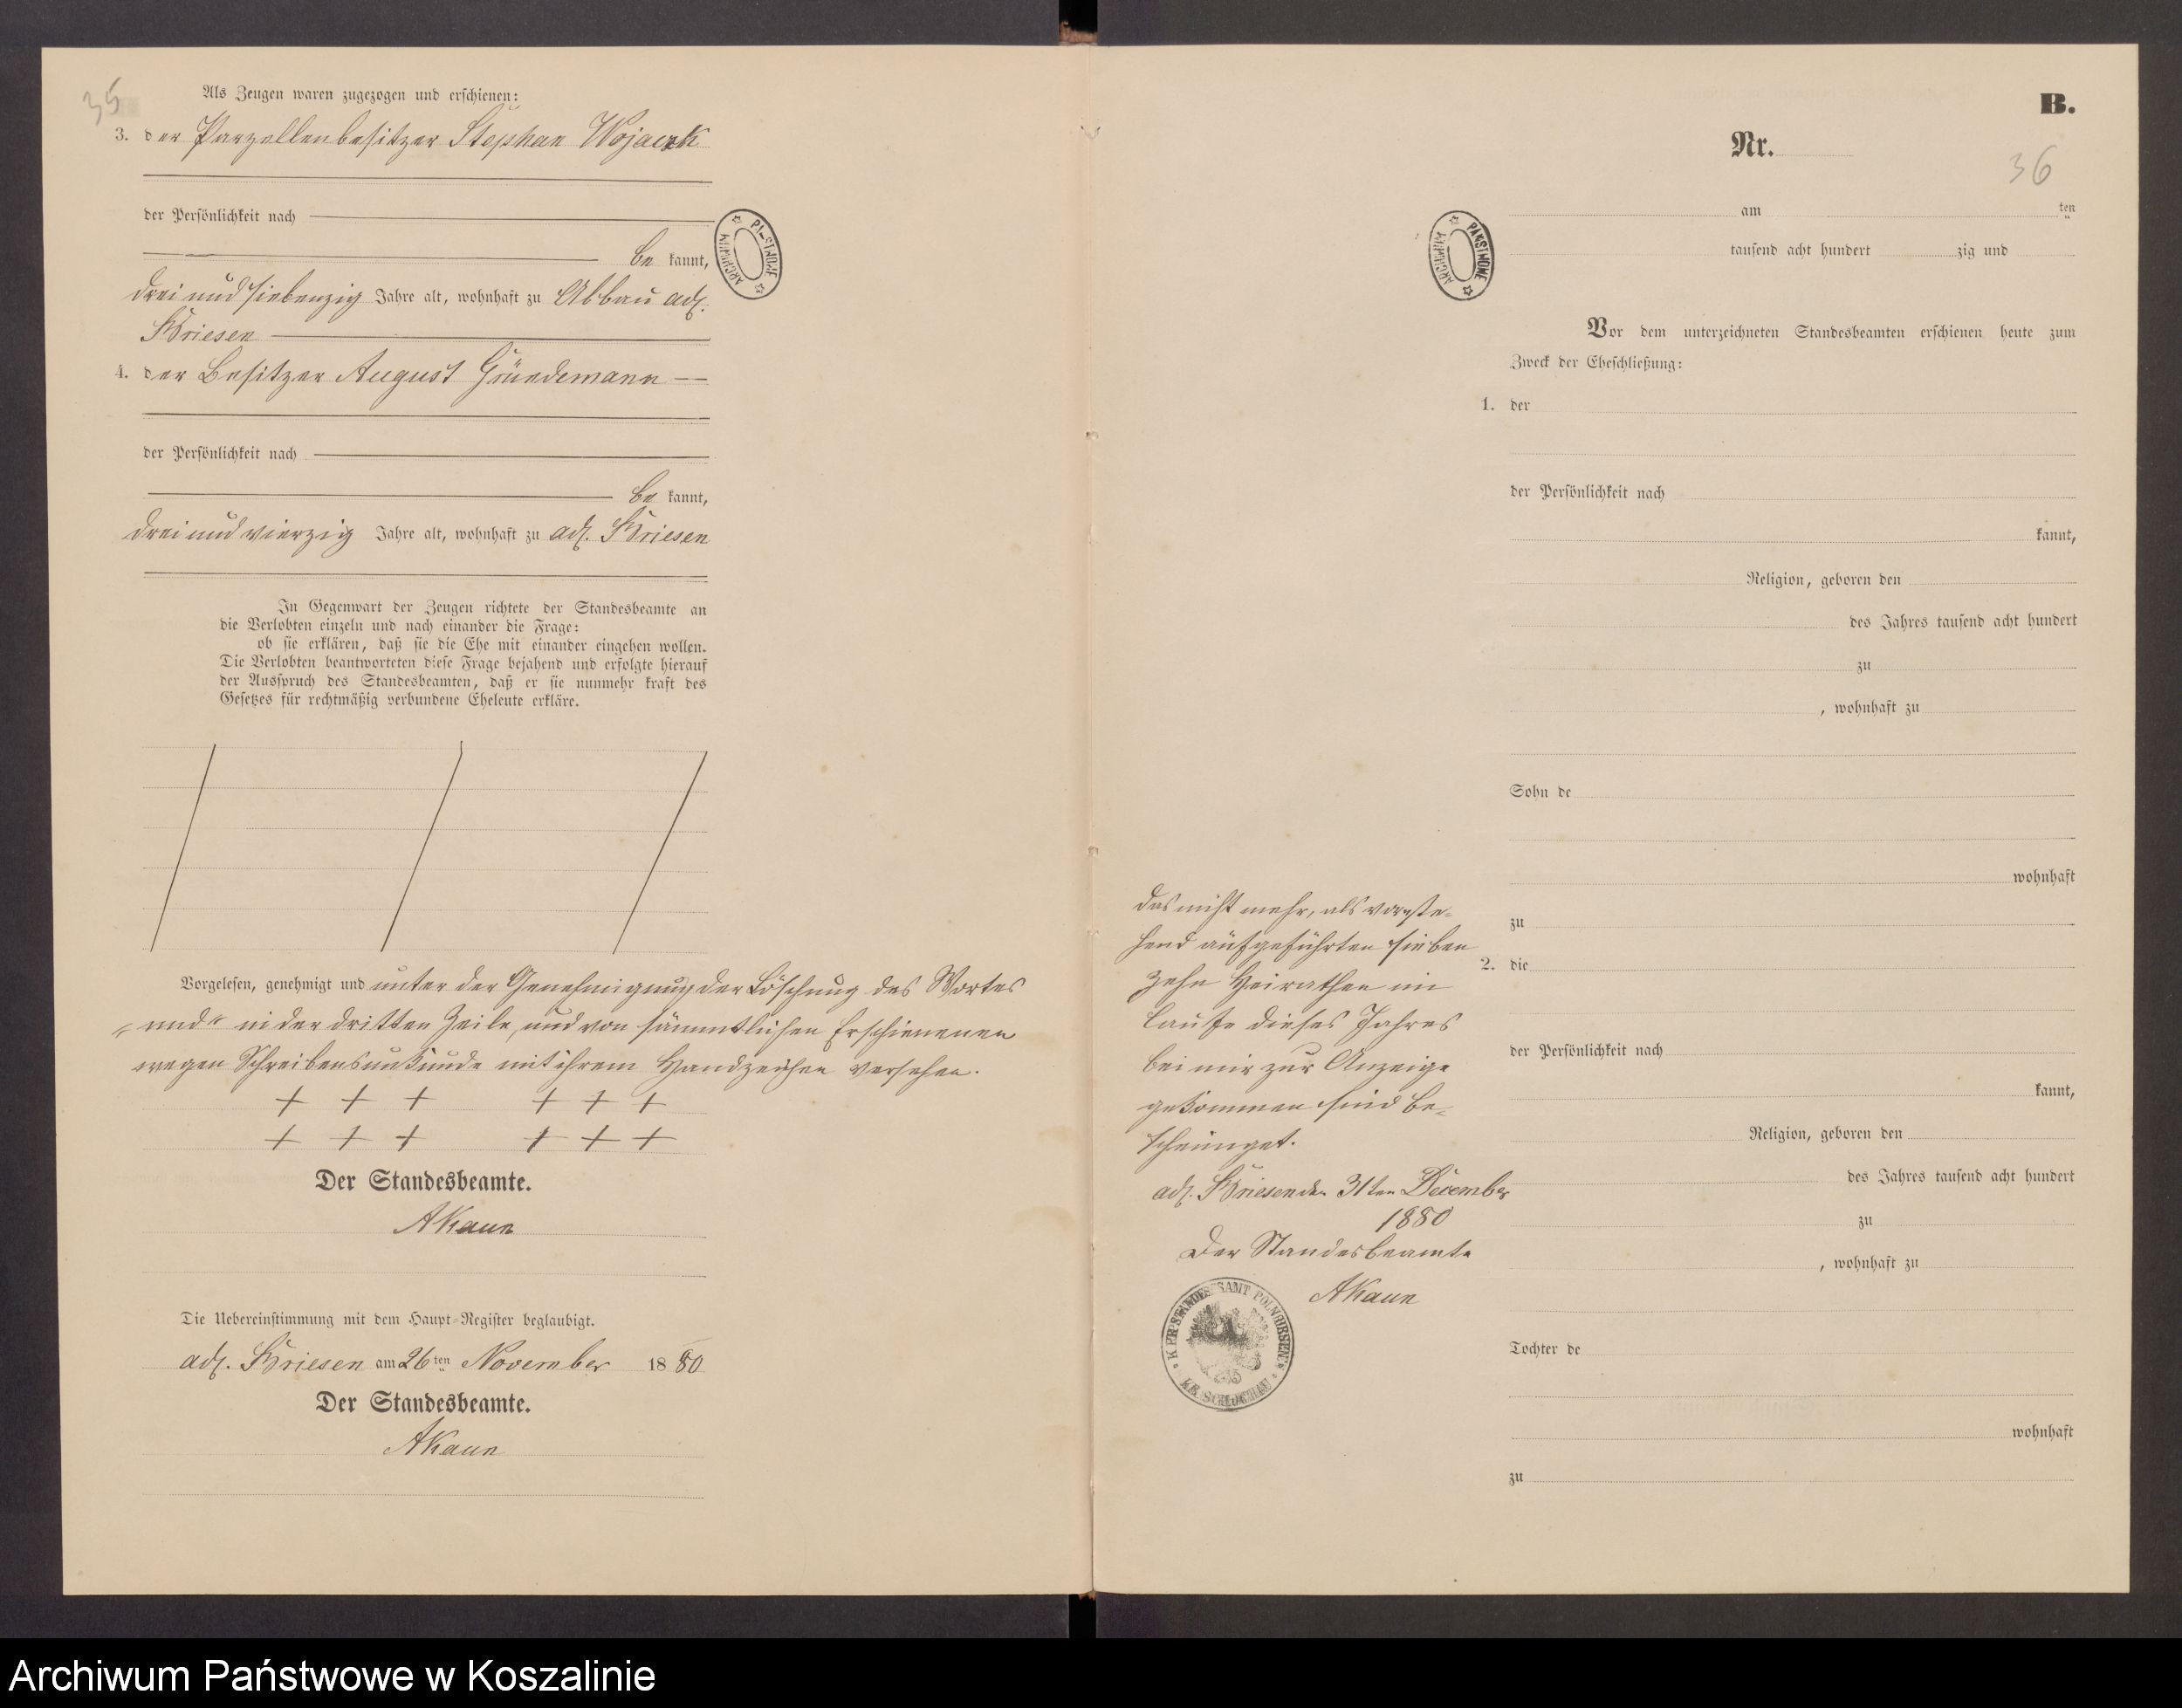 35
Als Zeugen waren zugezogen und erschienen:
3. der Parzellenbesitzer Stephan Wojaczk
der Persönlichkeit nach
be kannt,
drei und siebenzig Jahre alt, wohnhaft zu Abbau adl.
Briesen
4. der Besitzer August Gründemann
der Persönlichkeit nach
be kannt,
drei und vierzig Jahre alt, wohnhaft zu adl. Briesen
In Gegenwart der Zeugen richtete der Standesbeamte an
die Verlobten einzeln und nach einander die Frage:
ob sie erklären, daß sie die Ehe mit einander eingehen wollen.
Die Verlobten beantworteten diese Frage bejahend und erfolgte hierauf
der Ausspruch des Standesbeamten, daß er sie nunmehr kraft des
Gesetzes für rechtmäßig verbundene Eheleute erkläre.
Vorgelesen, genehmigt und unter der Genehmigung der Löschung des Wortes
„und“ in der dritten Zeile, und von sämmtlichen Erschienenen
wegen Schreibensunkunde mit ihrem Handzeichen versehen.
+ + + + + +
+ + + + + +
Der Standesbeamte.
AKaun
Die Uebereinstimmung mit dem Haupt-Register beglaubigt.
adl. Briesen am 26ten November 1880
Der Standesbeamte.
AKaun
B.
Nr.
36
am ten
tausend acht hundert zig und
Vor dem unterzeichneten Standesbeamten erschienen heute zum
Zweck der Eheschließung:
1. der
der Persönlichkeit nach
kannt,
Religion, geboren den
des Jahres tausend acht hundert
zu
, wohnhaft zu
Sohn de
wohnhaft
zu
2. die
der Persönlichkeit nach
kannt,
Religion, geboren den
des Jahres tausend acht hundert
zu
, wohnhaft zu
Tochter de
wohnhaft
zu
Das nicht mehr, als vorste-
hend aufgeführten sieben
zehn Heirathen im
Laufe dieses Jahres
bei mir zur Anzeige
gekommen sind be-
scheinget.
adl. Briesen den 31ten December
1880
Der Standesbeamte
AKaun
ARCHIWUM PAŃSTWOWE
ARCHIWUM PAŃSTWOWE
Archiwum Państwowe w Koszalinie